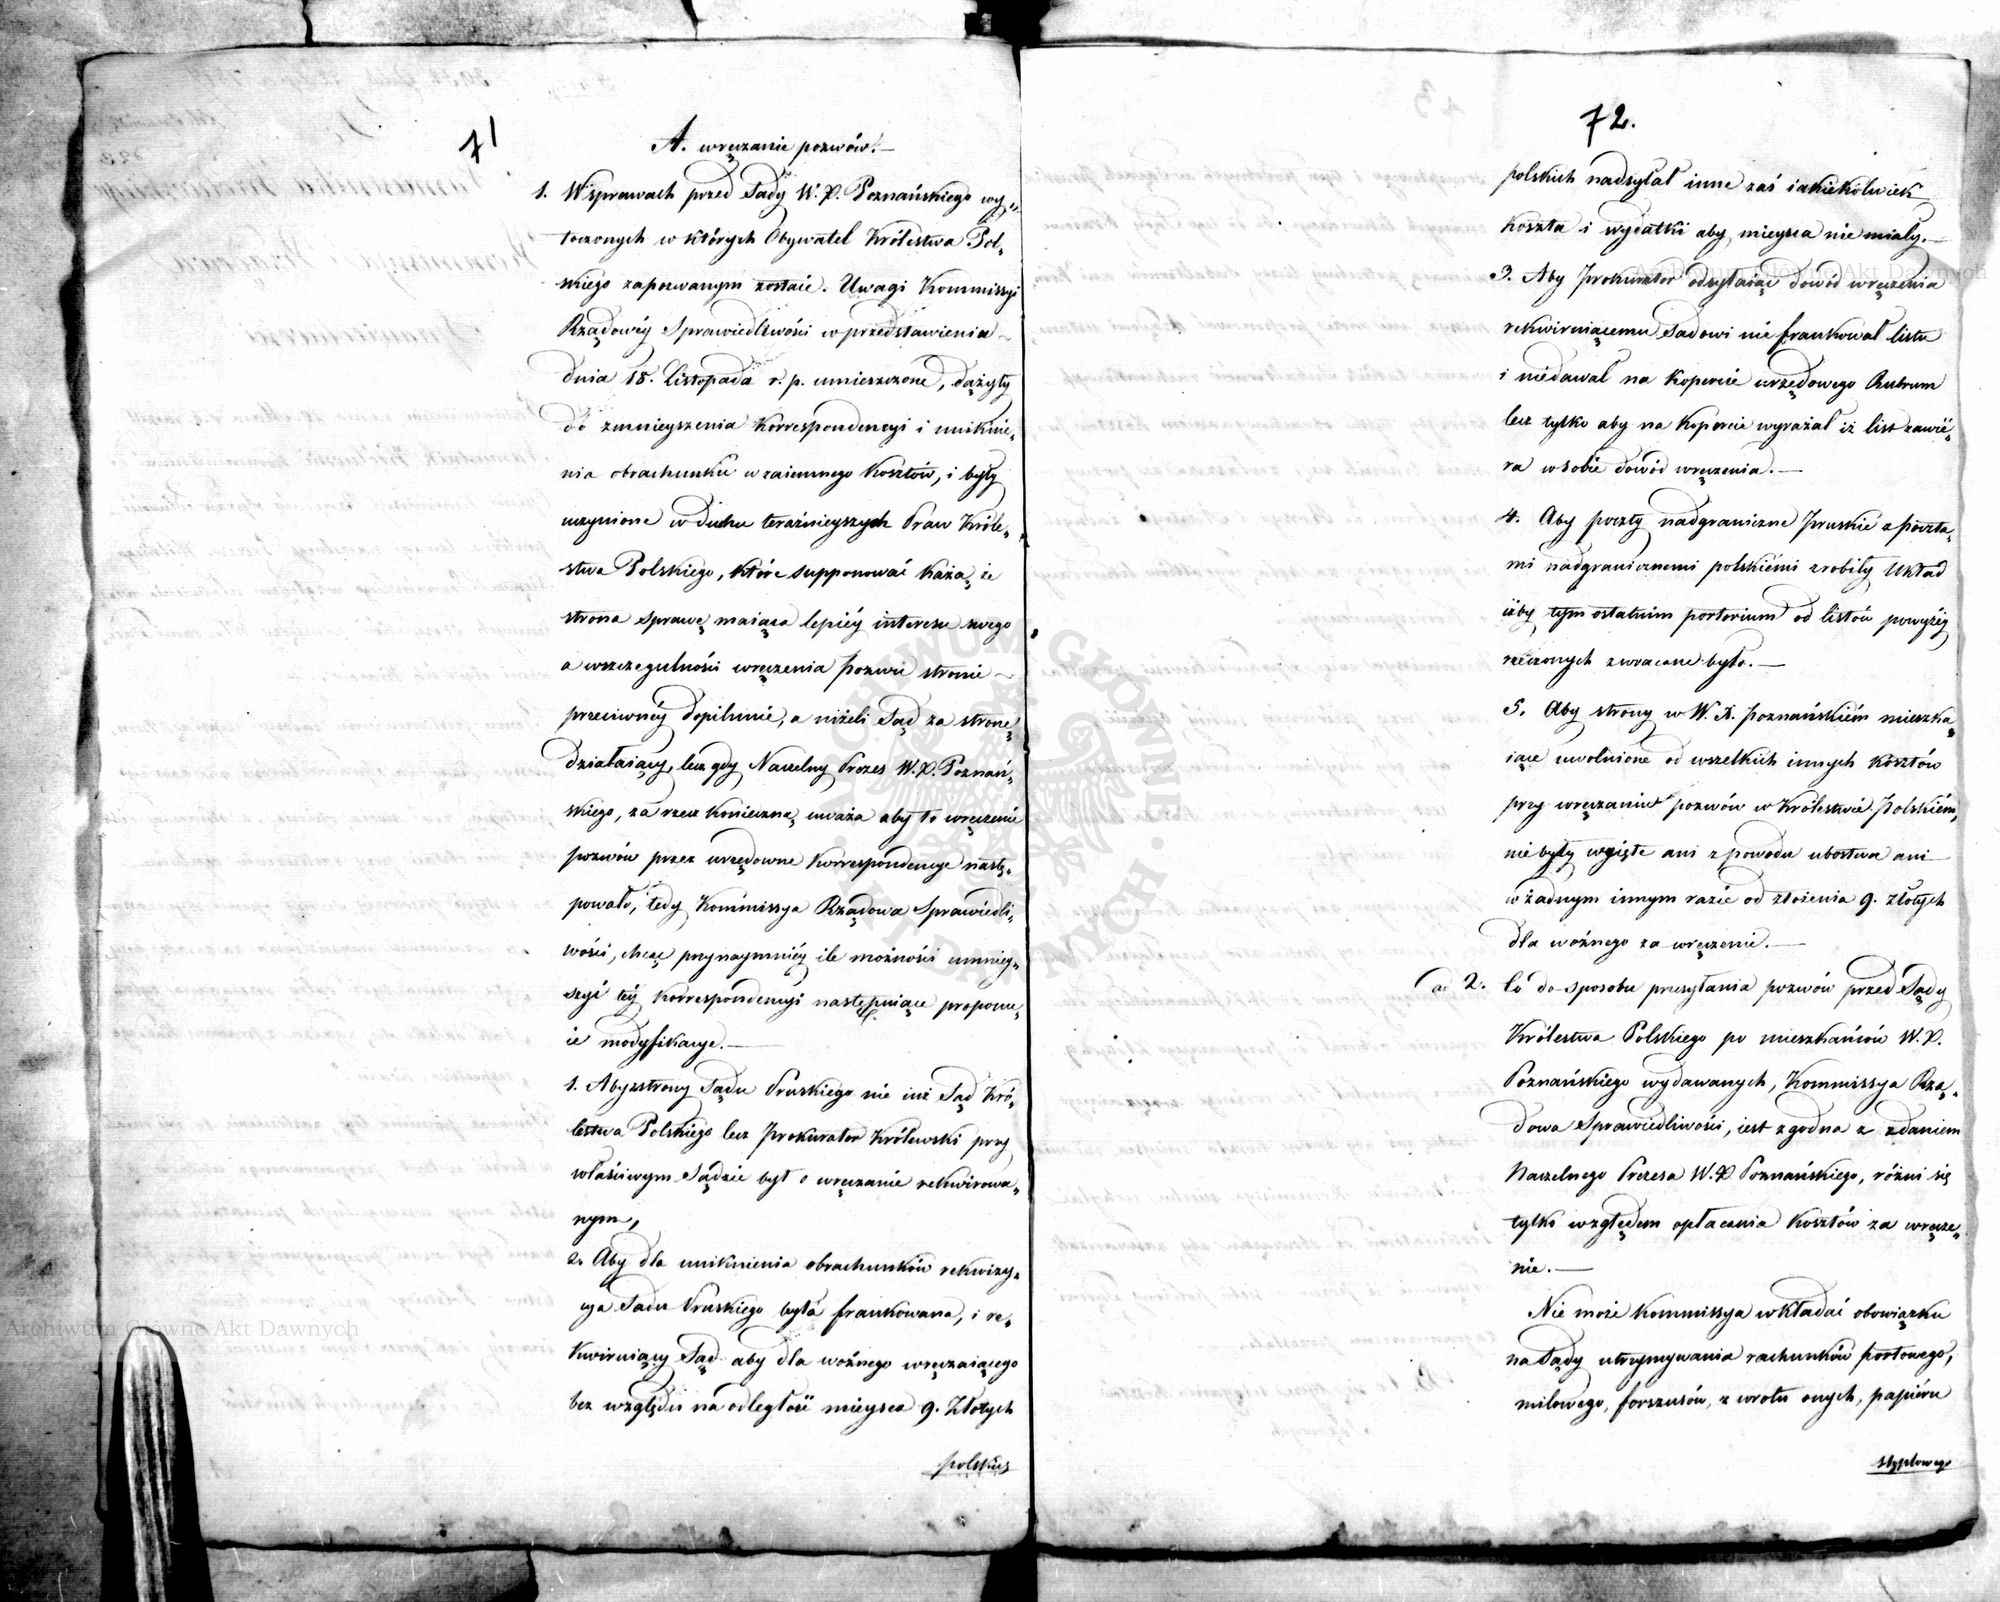 71
A. wręczanie pozwów.—
1. W sprawach przed Sądy W. X. Poznańskiego wy„
toczonych w których Obywatel Królestwa Pol„
skiego zapozwanym zostaie. Uwagi Kommissyi
Rządowéy Sprawiedliwości w przedstawienia
dnia 18. Listopada r. p. umieszczone, dążyły
do zmnieyszenia Korrespondencyi i uniknie„
nia obrachunku wzaiemnego Kosztów, i były
uczynione w duchu teraźnieyszych Praw Króle„
stwa Polskiego, które supponować każą, że
strona sprawę maiąca lepiéy interesu swego
a wszczegulności wręczenia pozwu stronie
przeciwnéy dopilnuie, a niżeli Sąd za stronę
działaiący, lecz gdy Naczelny Prezes W. X. Poznań„
skiego, za rzecz konieczną uważa aby to wręczenie
pozwów przez urzędowne Korrespondencye nastę„
powało, tedy Kommissya Rządowa Sprawiedli„
wości, chcąc przynaymniéy ile możności umniey„
szyć téy Korrespondencyi następuiące proponu„
ie modyfikacye.—
1. Aby zstrony Sądu Pruskiego nie iuż Sąd Kró„
lestwa Polskiego lecz Prokurator Królewski przy
właściwym Sądzie był o wręczanie rekwirowa„
nym,
2. Aby dla uniknienia obrachunków rekwizy„
cya Sądu Pruskiego była frankowana, i re„
kwiruiący Sąd aby dla woźnego wręczaiącego
bez względu na odległość mieysca 9. Złotych
polskich
72.
polskich nadsyłał inne zaś iakiekolwiek
koszta i wydatki aby mieysca nie miały.—
3. Aby Prokurator odsyłaiąc dowód wręczenia
rekwiruiącemu Sądowi nie frankował listu
i niedawał na Kopercie urzędowego Rubrum
lecz tylko aby na Kopercie wyrażał iż list zawié„
ra w sobie dowód wręczenia.—
4. Aby poczty nadgraniczne Pruskie z poczta„
mi nadgranicznemi polskiémi zrobiły Układ
iżby tym ostatnim portorium od listów powyżéy
rzeczonych zwracane było.—
5. Aby strony w W. X. Poznańskiém mieszka„
iące uwolnione od wszelkich innych kosztów
przy wręczaniu pozwów w Królestwie Polskiém,
nie były wyięte ani z powodu ubostwa ani
w żadnym innym razie od złożenia 9. Złotych
dla woźnego za wręczenie.—
ad 2. Co do sposobu przesyłania pozwów przed Sądy
Królestwa Polskiego po mieszkańców W. X.
Poznańskiego wydawanych, Kommissya Rzą„
dowa Sprawiedliwości, iest zgodna z zdaniem
Naczelnego Prezesa W. X Poznańskiego, różni się
tylko względem opłacania Kosztów za wręcze„
nie.—
Nie może Kommissya wkładać obowiązku
na Sądy utrzymywania rachunków portowego,
milowego, forszusów, zwrotu onych, papiéru
stęplowego
Archiwum Główne Akt Dawnych
Archiwum Główne Akt Dawnych
ARCHIWUM GŁÓWNE AKT DAWNYCH